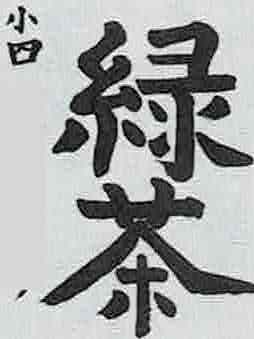 緑茶
小四